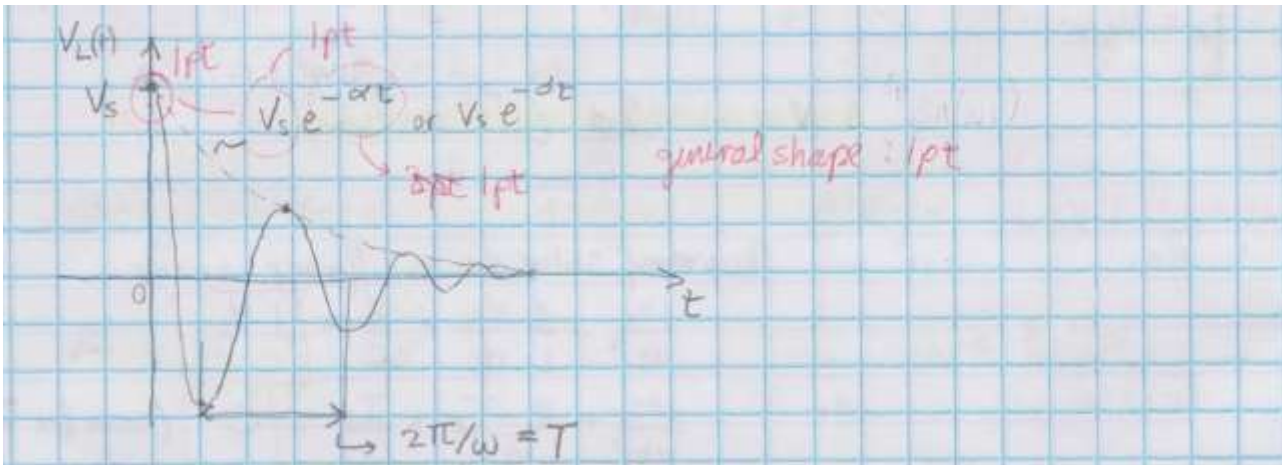 V_L(t)
1pt
1pt
V_s
V_s e^{-αt} or V_s e^{-αt}
general shape : 1pt
1pt
0
t
2π/ω = T